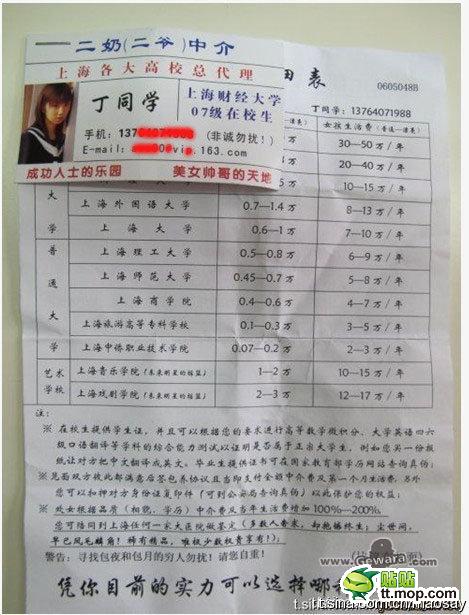 一二奶(二爷)中介
上海各大高校总代理
丁同学
上海财经大学
07级在校生
手机: (非诚勿扰!)
E-mail: @vip.163.com
成功人士的乐园 美女帅哥的天地
用表
0605048B
丁同学: 13764071988
女孩生活费(普通—漂亮)
30—50万/年
20—40万/年
10—15万/年
上海外国语大学 0.7—1.4万 8—13万/年
上海大学 0.6—1万 7—10万/年
上海理工大学 0.5—0.8万 6—9万/年
上海师范大学 0.45—0.7万 5—8万/年
上海商学院 0.4—0.6万 4—7万/年
上海旅游高等专科学校 0.1—0.3万 3—5万/年
上海中侨职业技术学院 0.07—0.2万 2—3万/年
大学
普通大学
艺术学校
上海音乐学院(未来明星的摇篮) 1—2万 10—15万/年
上海戏剧学院(未来明星的摇篮) 2—3万 12—17万/年
注:
※ 在校生提供学生证,并且可以根据您的要求进行高等数学微积分、大学英语四六
级口语翻译等学科的综合能力测试以证明是否属于正宗大学生,例如您买一份报
纸让对方把中文翻译成英文。毕业生提供证书可在国家教育部学历网站查询真伪;
※ 见面双方彼此都满意后签包养协议且当即支付全额中介费及第一个月生活费。另外
您可以扣押对方身份证复印件(可到公安局查询真伪)以此保护您的权益;
※ 处女根据品质(相貌、学历)中介费及当年生活费增加100%—200%.
您可陪同到上海任何一家大医院做鉴定(
早已凤毛麟角!稀有精品,唯极少数权贵享有!);
警告: 寻找包夜和包月的穷人勿扰!请您自重!
凭你目前的实力可以选择哪
Gewara.com
贴贴
tt.mop.com